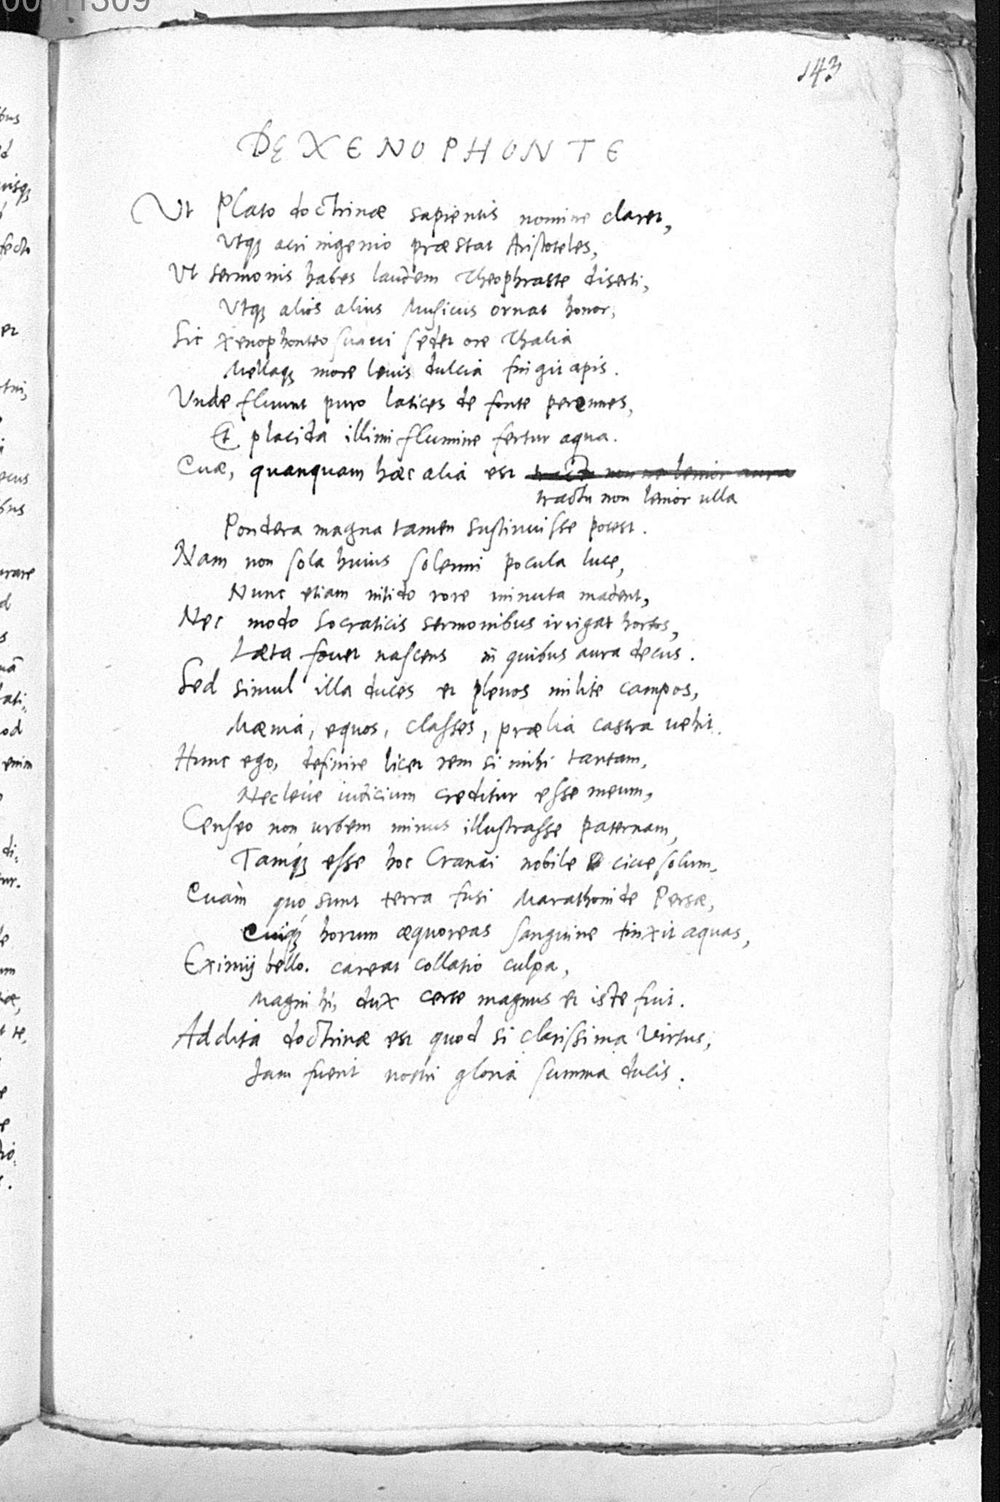 143
DE XENOPHONTE
Ut Plato doctrinæ sapientis nomine claret,
Utq; acri ingenio præstat Aristoteles,
Ut sermonis habes laudem Theophraste diserti,
Utq; alios alius Musicus ornat honor,
Sic Xenophonteo suavi sedet ore Thalia
Mellaq; more levis dulcia fingit apis.
Unde fluunt puro latices de fonte perennes,
Et placida illimi flumine fertur aqua.
Cuæ, quanquam hæc alia est
tractu non lenior ulla
Pondera magna tamen sustinuisse potest.
Nam non sola huius solenni pocula luce,
Nunc etiam nitido rore minuta madent,
Nec modo Socraticis sermonibus irrigat hortos,
Læta fovet nascens in quibus aura decus.
Sed simul illa duces et plenos milite campos,
Mænia, equos, classes, prælia castra vehit.
Hunc ego, definire licet rem si mihi tantam,
Nec leve iudicium creditur esse meum,
Censeo non urbem minus illustrasse paternam,
Tamq; esse hoc Cranai nobile cive solum,
Cuàm quo sunt terra fusi Marathonide Persæ,
Cuiq; horum æquoreas sanguine tinxit aquas,
Eximij bello. careat collatio culpa,
Magni hi, dux certe magnus et iste fuit.
Addita doctrinæ est quod si clarissima virtus,
Iam fuerit nostri gloria summa ducis.